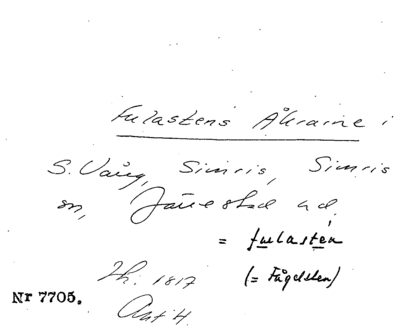 Fulastens Åkrarne i
S. Vång, Simris, Simris
sn, Järrestad hd.
= fulastén
Lh. 1817 (= Fågelsten)
Nr 7705.
Akt 4